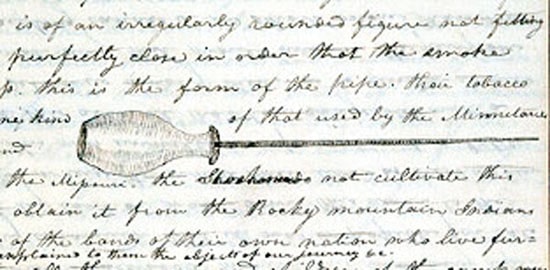 is of an irregularly rounded figure not fitting
purfectly close in order that the smoke
p. this is the form of the pipe. their tobacco
me kind of that used by the Minnetares
nd
the Missouri. the Shoshonees do not cultivate this
obtain it from the Rocky mountain Indians
of the bands of their own nation who live fur-
explained to them the objects of our journey &c.